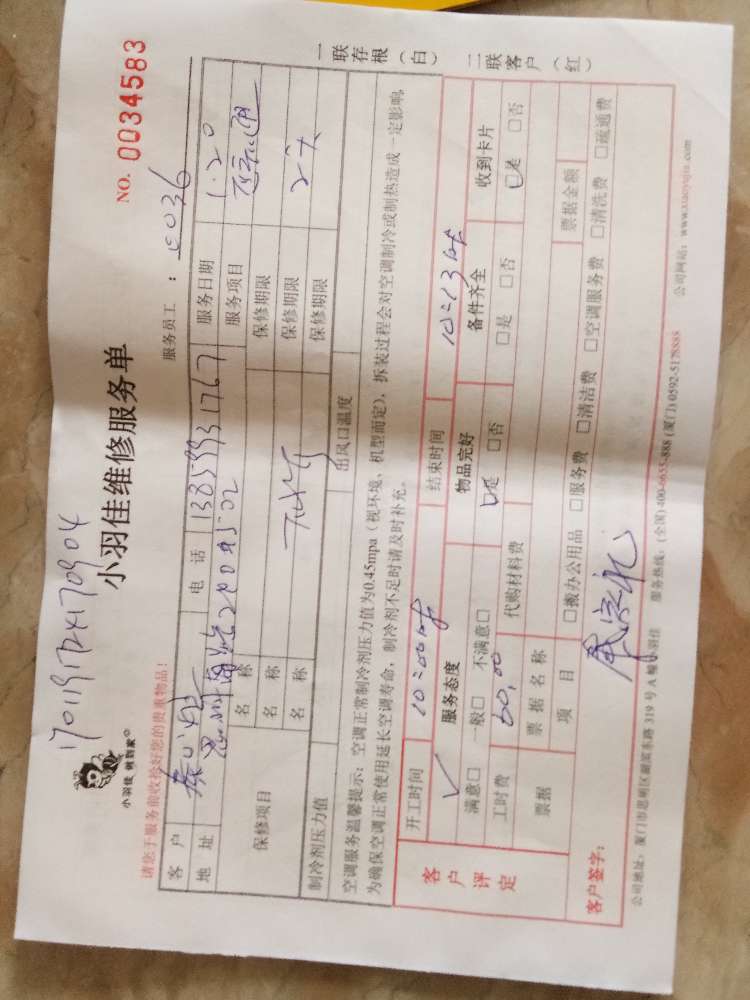 170119172417 0904
小羽佳维修服务单
NO. 0034583
小羽佳 俐到家
请您于服务前收拾好您的贵重物品!
服务员工:0036
客户
电话 13859931767
服务日期 1.20
地址
服务项目
保修项目
名称
保修期限
名称
保修期限 2天
名称
保修期限
制冷剂压力值
出风口温度
空调服务温馨提示:空调正常制冷剂压力值为0.45mpa(视环境、机型而定),拆装过程会对空调制冷或制热造成一定影响,
为确保空调正常使用延长空调寿命,制冷剂不足时请及时补充。
一联存根(白)
二联客户(红)
客户评定
开工时间 10:00
结束时间 10:13
服务态度
物品完好
备件齐全
收到卡片
满意□ 一般□ 不满意□
□是 □否
□是 □否
□是 □否
工时费 60.00
代购材料费
票据
票据名称
票据金额
项目
□搬办公用品 □服务费 □清洁费 □空调服务费 □清洗费 □疏通费
客户签字:
公司地址:厦门市思明区湖滨东路319号A幢 小羽佳
服务热线:(全国)400-6655-888 (厦门)0592-5178888
公司网站:www.xiaoyujia.com